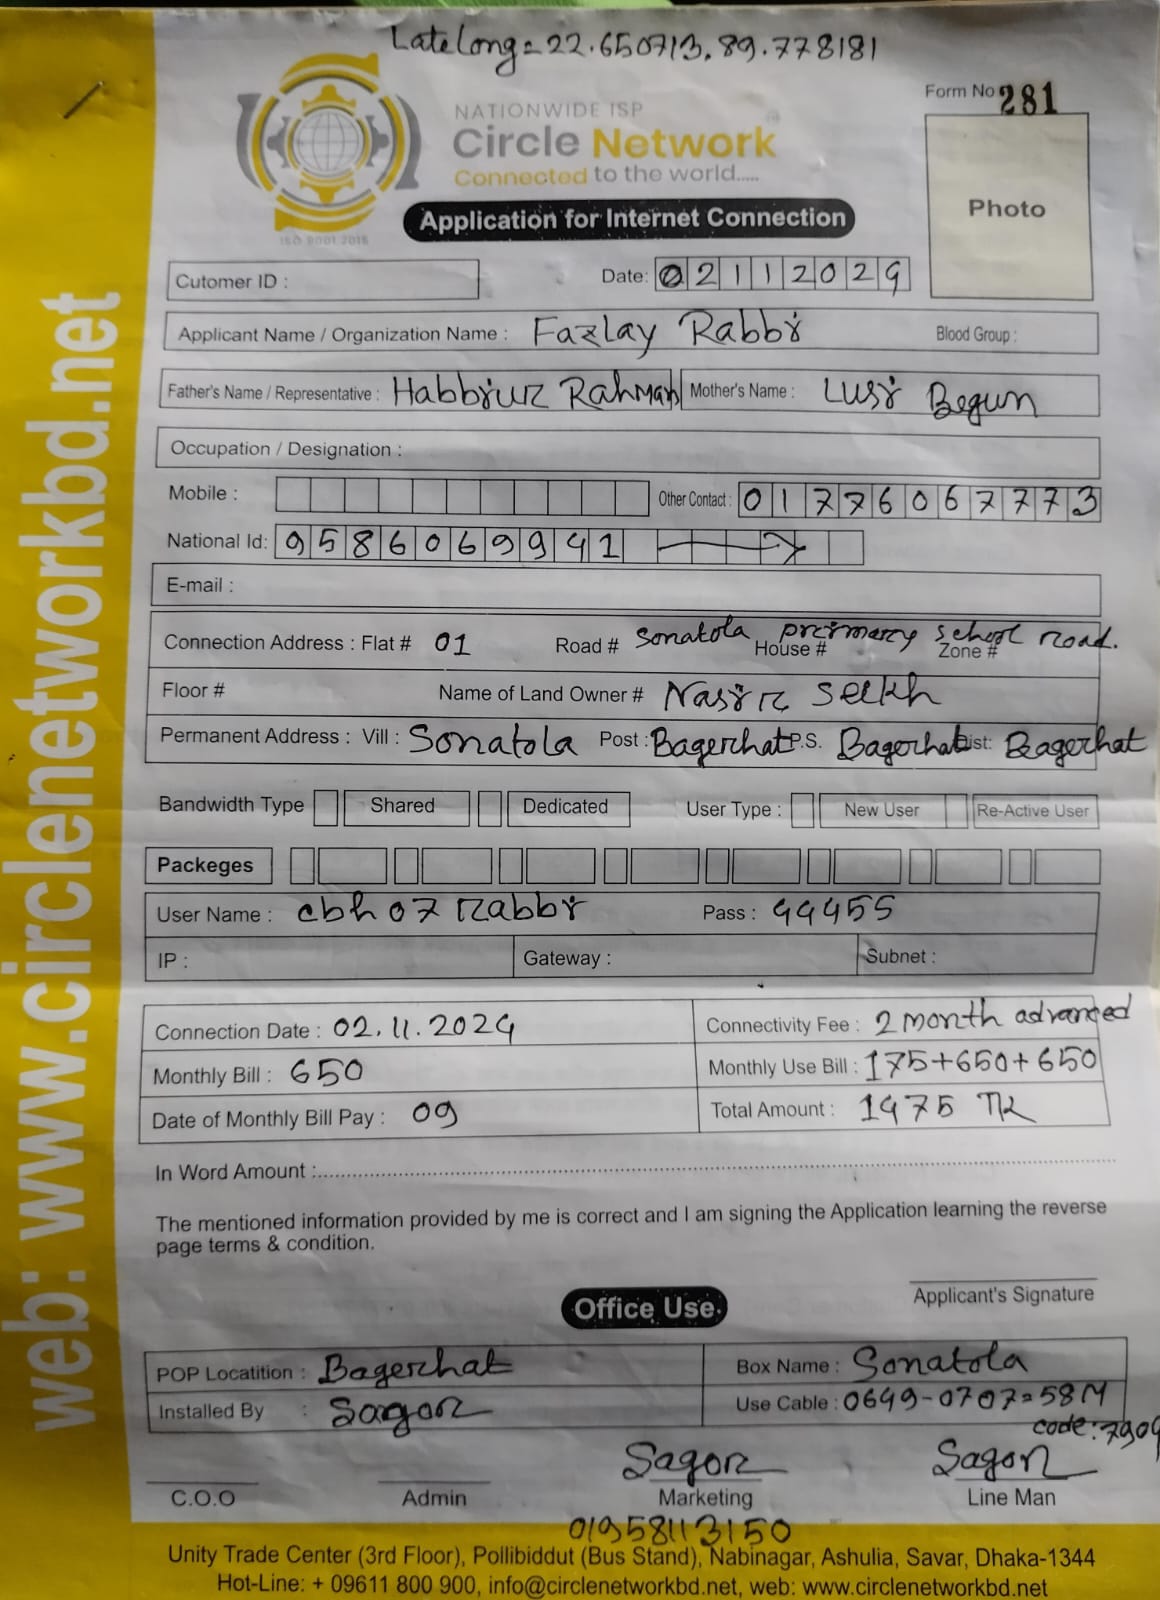 Late Long = 22.650713, 89.778181
Form No 281
NATIONWIDE ISP
Circle Network
Connected to the world.....
ISO 9001:2015
Photo
Application for Internet Connection
Cutomer ID :
Date: 02112024
Applicant Name / Organization Name : Fazlay Rabbi
Blood Group :
Father's Name / Representative : Habbiur Rahman Mother's Name : Lusi Begum
Occupation / Designation :
Mobile : Other Contact : 01776067773
National Id: 9586069941
E-mail :
Connection Address : Flat # 01 Road # Sonatola primary school road. House # Zone #
Floor # Name of Land Owner # Nasir Seikh
Permanent Address : Vill : Sonatola Post : Bagerhat P.S. Bagerhat Dist: Bagerhat
Bandwidth Type Shared Dedicated User Type : New User Re-Active User
Packeges
User Name : cbh07rabbi Pass : 44455
IP : Gateway : Subnet :
Connection Date : 02.11.2024 Connectivity Fee : 2 month advanced
Monthly Bill : 650 Monthly Use Bill : 175+650+650
Date of Monthly Bill Pay : 09 Total Amount : 1475 TK
In Word Amount :
The mentioned information provided by me is correct and I am signing the Application learning the reverse
page terms & condition.
Applicant's Signature
Office Use.
POP Locatition : Bagerhat Box Name : Sonatola
Installed By : Sagor Use Cable : 0649-0707=58M
code: 7909
Sagor Sagor
C.O.O Admin Marketing Line Man
01958113150
Unity Trade Center (3rd Floor), Pollibiddut (Bus Stand), Nabinagar, Ashulia, Savar, Dhaka-1344
Hot-Line: + 09611 800 900, info@circlenetworkbd.net, web: www.circlenetworkbd.net
web: www.circlenetworkbd.net